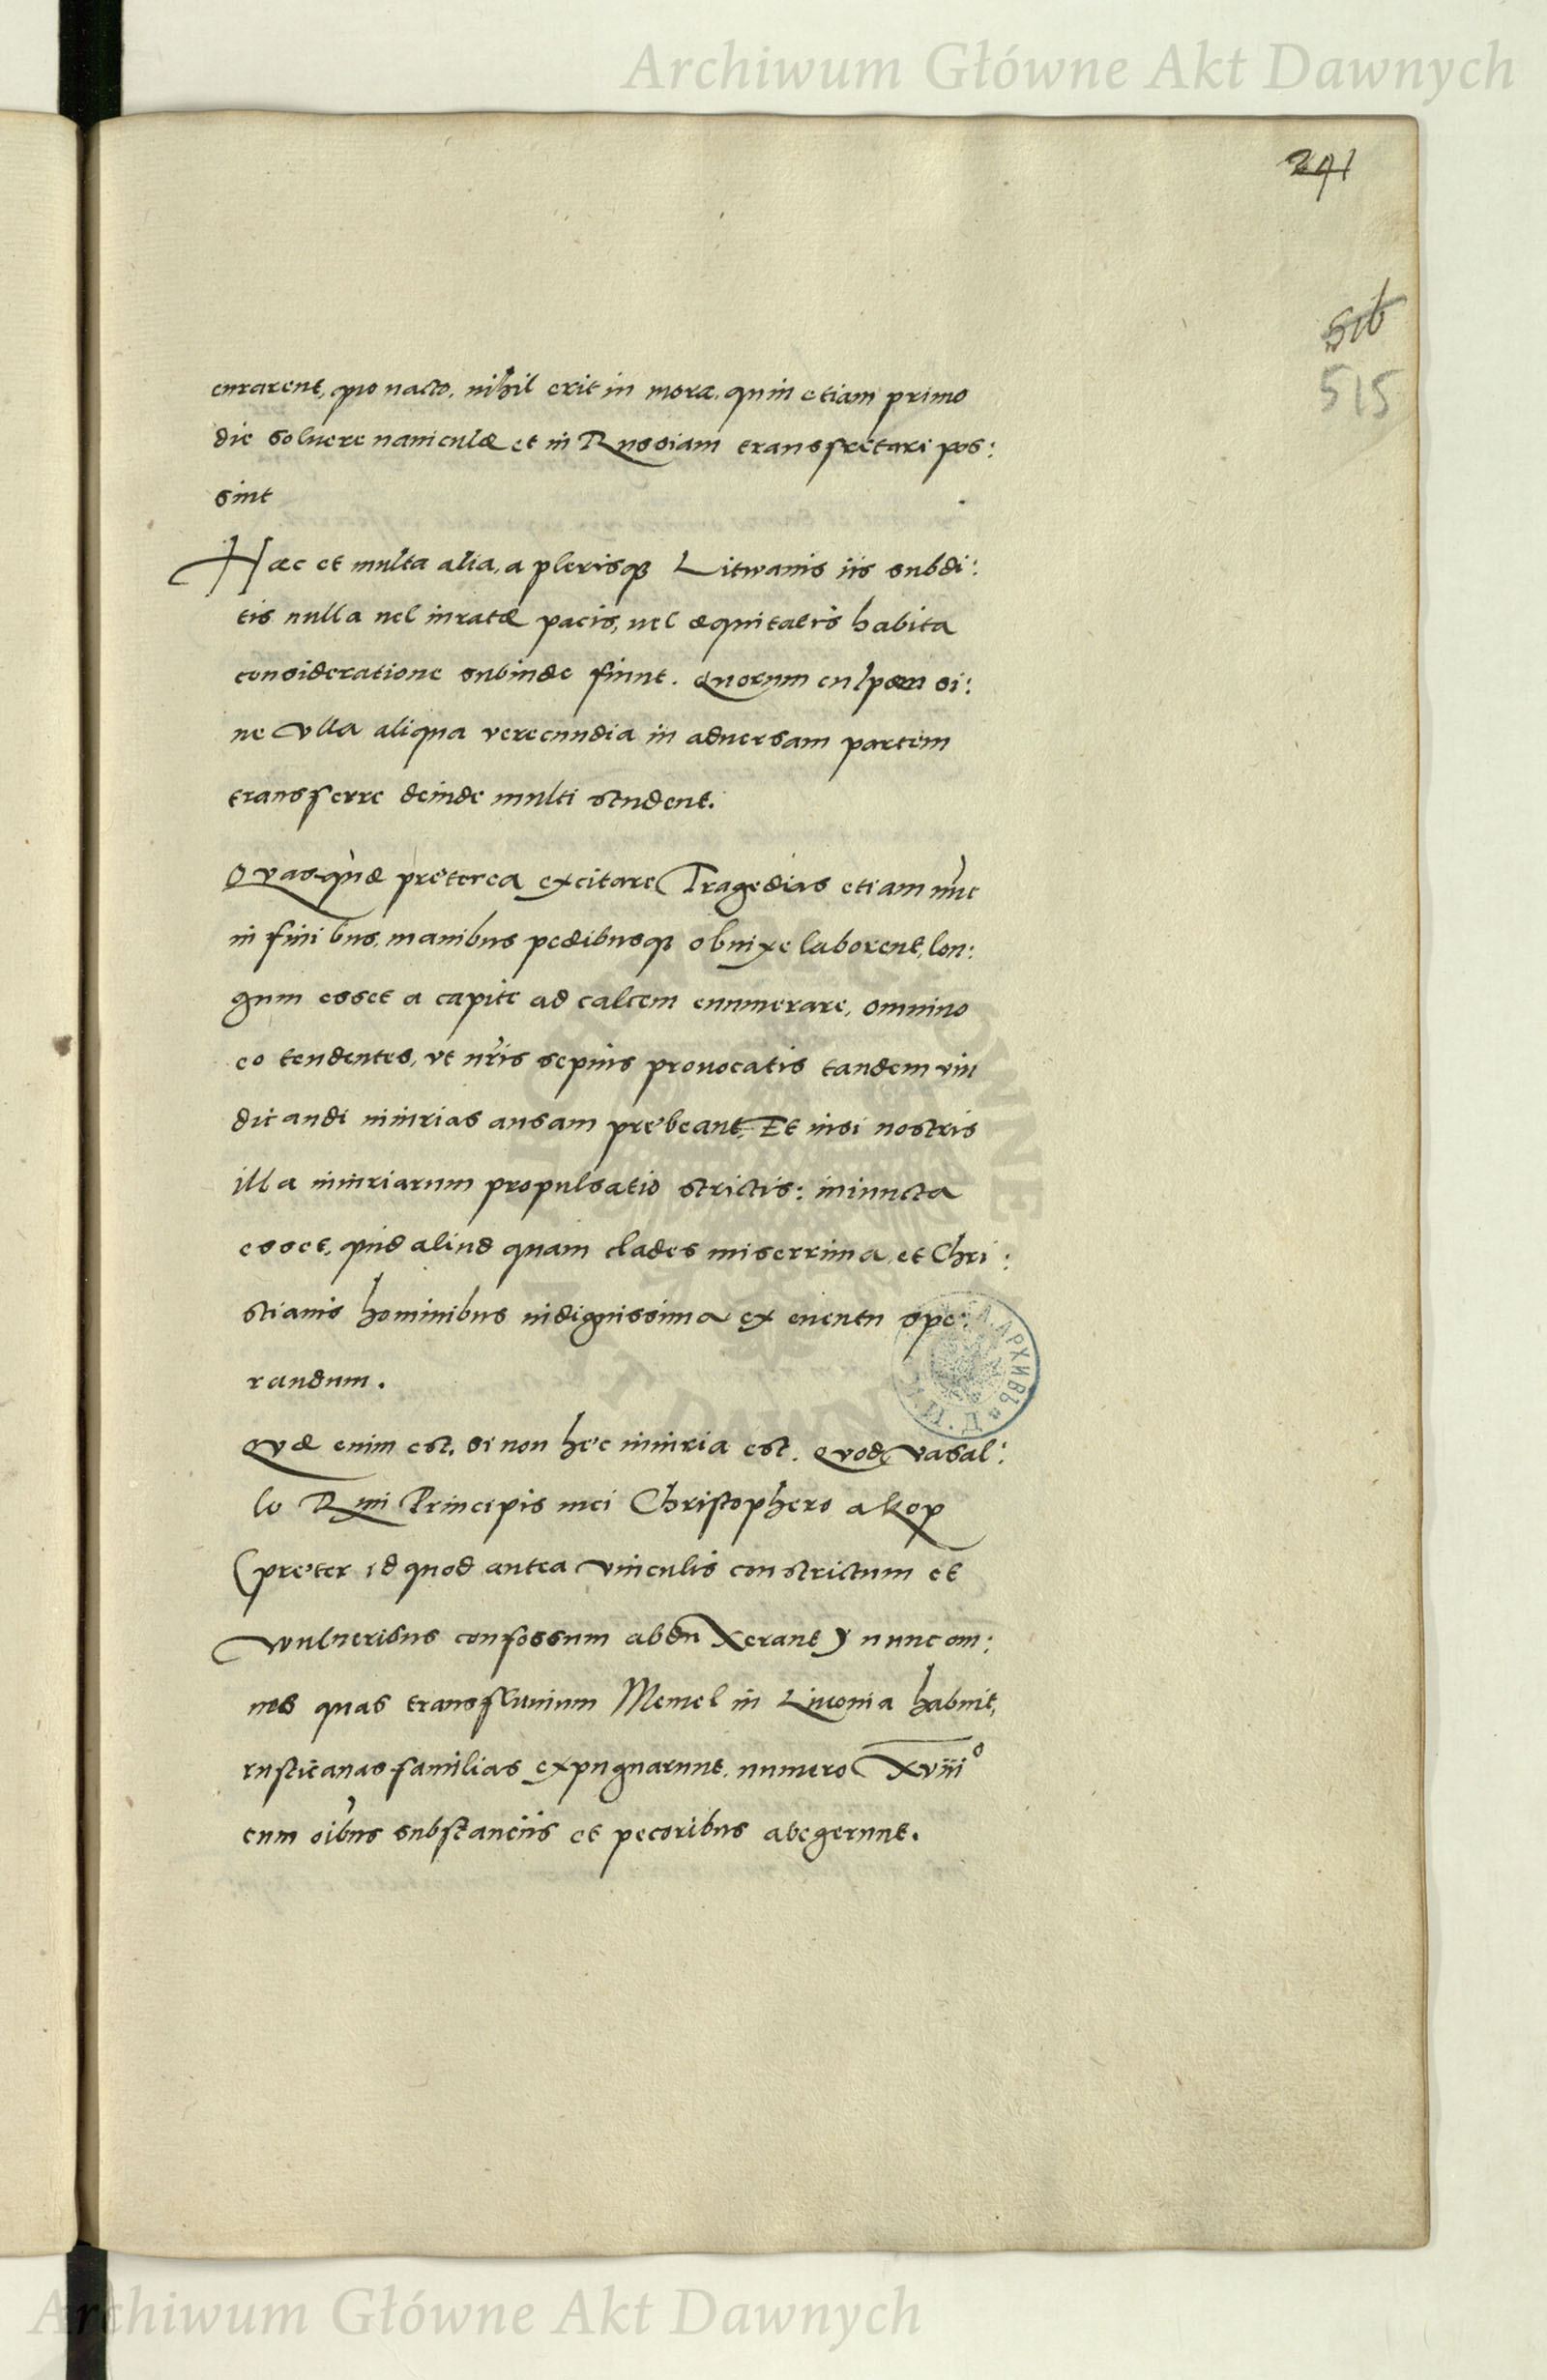 Archiwum Główne Akt Dawnych
241
516
515
curarent, quo nacto, nihil erit in mora, quin etiam primo
die soluere nauiculæ et in Russiam transfretare pos:
sint
Hæc et multa alia, a plerisqȝ Litwanis iis subdi:
tis nulla uel iuratæ pacis, uel æquitatis habita
consideratione subinde fiunt. Quorum culpam si:
ne vlla aliqua verecundia in aduersam partem
transferre deinde multi student.
Quasquæ preterea excitare Tragedias etiam nũc
in finibus, manibus pedibusqȝ obnixe laborent, lon:
gum esset a capite ad calcem enumerare, omnino
eo tendentes, vt nr̃is sepius prouocatis tandem vin
dicandi iniurias ansam prebeant. Et nisi nostris
illa iniuriarum propulsatio strictis: iniuncta
esset, quid aliud quam clades miserrima, et Chri:
stianis hominibus indignissima ex euentu spe:
randum.
Quæ enim est, si non hec iniuria est. Quod vasal:
lo Rmi Principis mei Christophero a kop
(preter id quod antea vinculis constrictum et
vulneribus confossum abduxerant) nunc om:
nes quas trans fluuium Memel in Liuonia habuit,
rusticanas familias expugnarunt, numero xviii°
cum oĩbus substanciis et pecoribus abegerunt.
Archiwum Główne Akt Dawnych